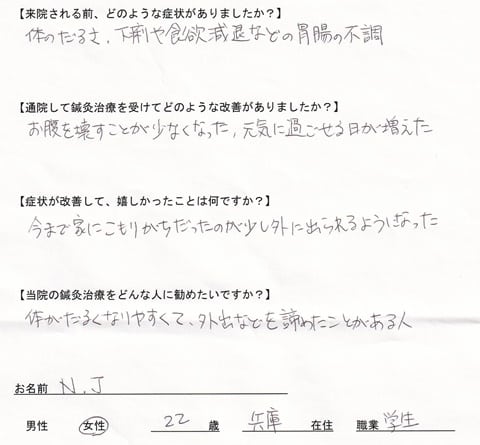 【来院される前、どのような症状がありましたか？】
体のだるさ、下痢や食欲減退などの胃腸の不調
【通院して鍼灸治療を受けてどのような改善がありましたか？】
お腹を壊すことが少なくなった，元気に過ごせる日が増えた
【症状が改善して、嬉しかったことは何ですか？】
今まで家にこもりがちだったのが少し外に出られるようになった
【当院の鍼灸治療をどんな人に勧めたいですか？】
体がだるくなりやすくて、外出などを諦めたことがある人
お名前 N.J
男性 女性 22 歳 兵庫 在住 職業 学生